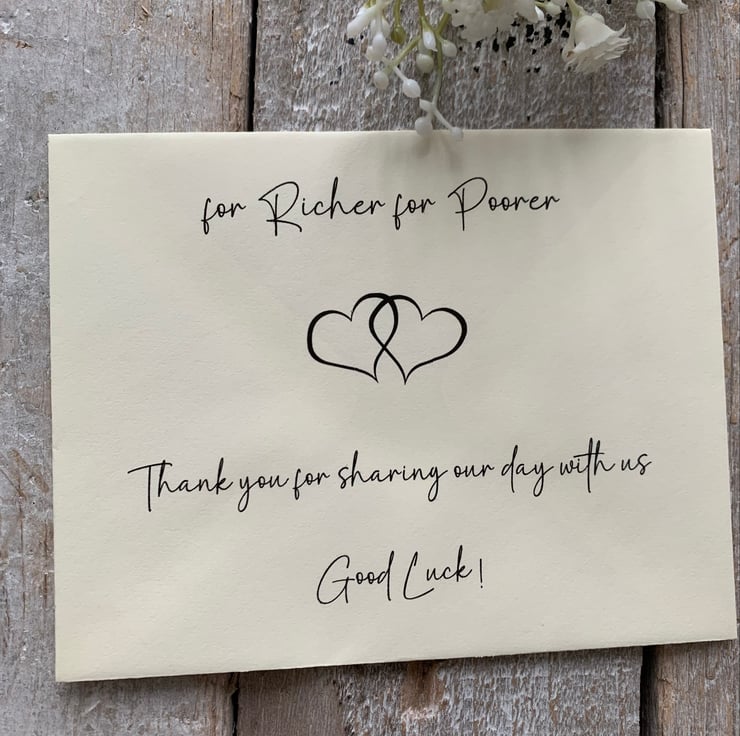 for Richer for Poorer
Thank you for sharing our day with us
Good Luck!